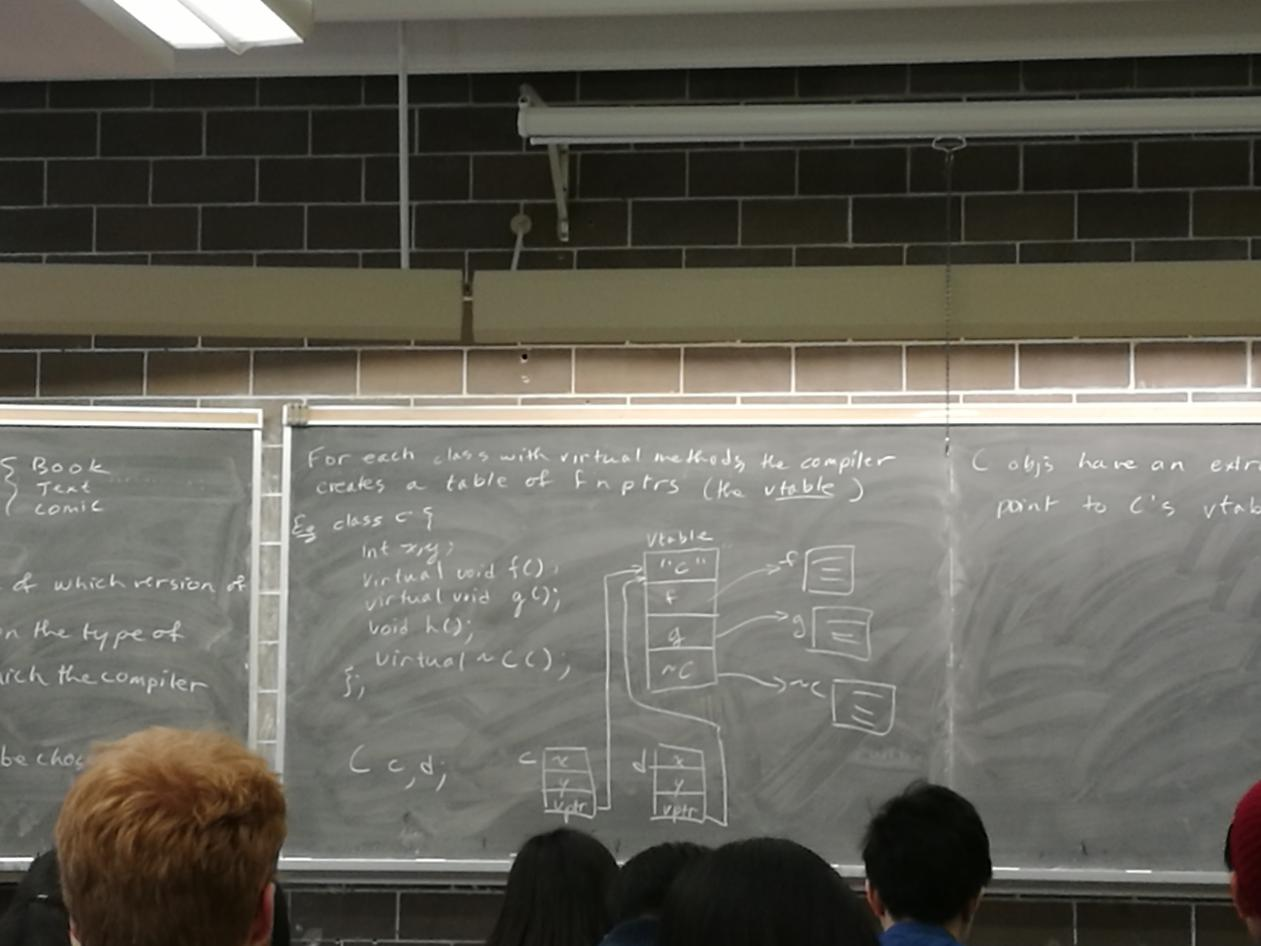 { Book
Text
Comic
of which version of
on the type of
which the compiler
be
For each class with virtual methods, the compiler
creates a table of fn ptrs (the vtable)
Eg class C {
int x,y;
virtual void f();
virtual void g();
void h();
virtual ~C();
};
C c,d;
c
x
y
vptr
d
x
y
vptr
vtable
"C"
f
g
~C
f
g
~C
C objs have an
point to C's